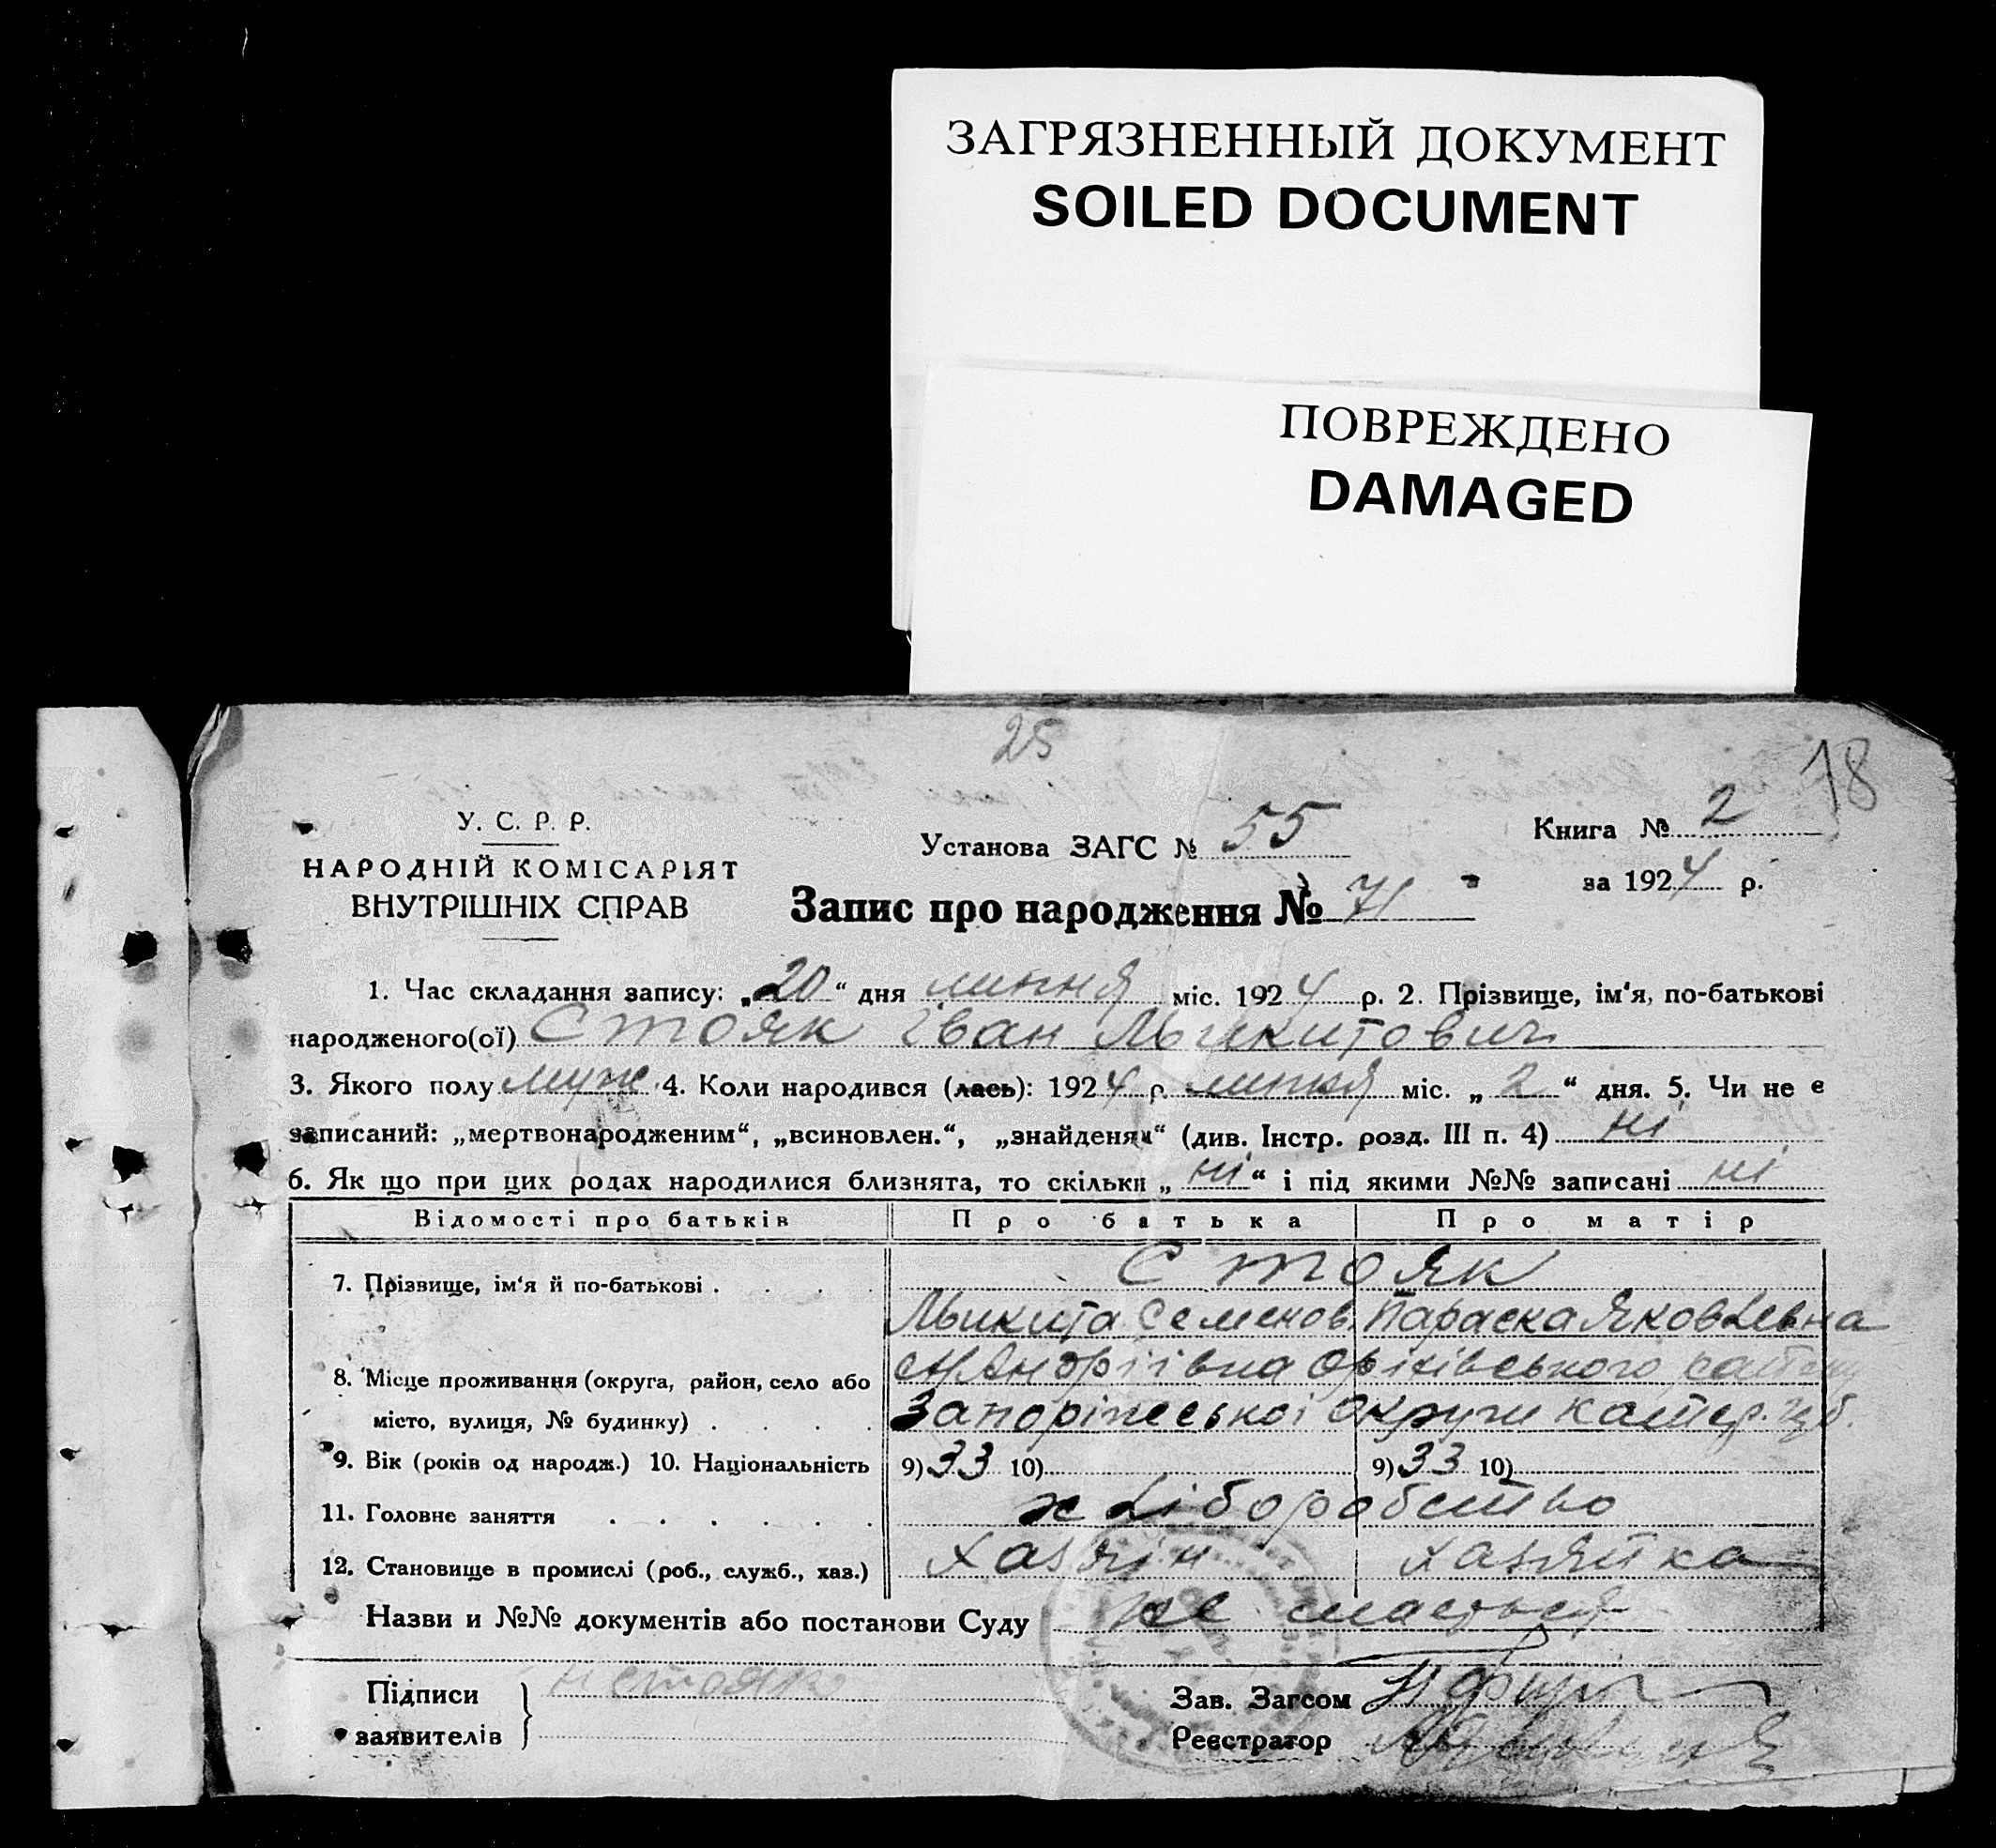 ЗАГРЯЗНЕННЫЙ ДОКУМЕНТ
SOILED DOCUMENT
ПОВРЕЖДЕНО
DAMAGED
25
18
У. С. Р. Р.
НАРОДНІЙ КОМІСАРІЯТ
ВНУТРІШНІХ СПРАВ
Установа ЗАГС № 55
Книга № 2
за 1924 р.
Запис про народження № 71
1. Час складання запису: „20“ дня липня міс. 1924 р. 2. Прізвище, ім'я, по-батькові
народженого(ої) Стояк Іван Микитович
3. Якого полу муж. 4. Коли народився (лась): 1924 р. липня міс. „2“ дня. 5. Чи не є
записаний: „мертвонародженим“, „всиновлен.“, „знайденям“ (див. Інстр. розд. III п. 4) ні
6. Як що при цих родах народилися близнята, то скільки „ні“ і під якими №№ записані ні
Відомості про батьків Про батька Про матір
Стояк
7. Прізвище, ім'я й по-батькові .
Микита Семенов. Параска Яковлевна
8. Місце проживання (округа, район, село або Андріївна Оріхівського
місто, вулиця, № будинку) . Запоріжської Округи Катер. губ.
9. Вік (років од народж.) 10. Національність 9) 33 10) 9) 33 10)
11. Головне заняття хліборобство
12. Становище в промислі (роб., служб., хаз.) Хазяїн хазяйка
Назви и №№ документів або постанови Суду не мається
Підписи Н Стояк
заявителів
Зав. Загсом
Реєстратор